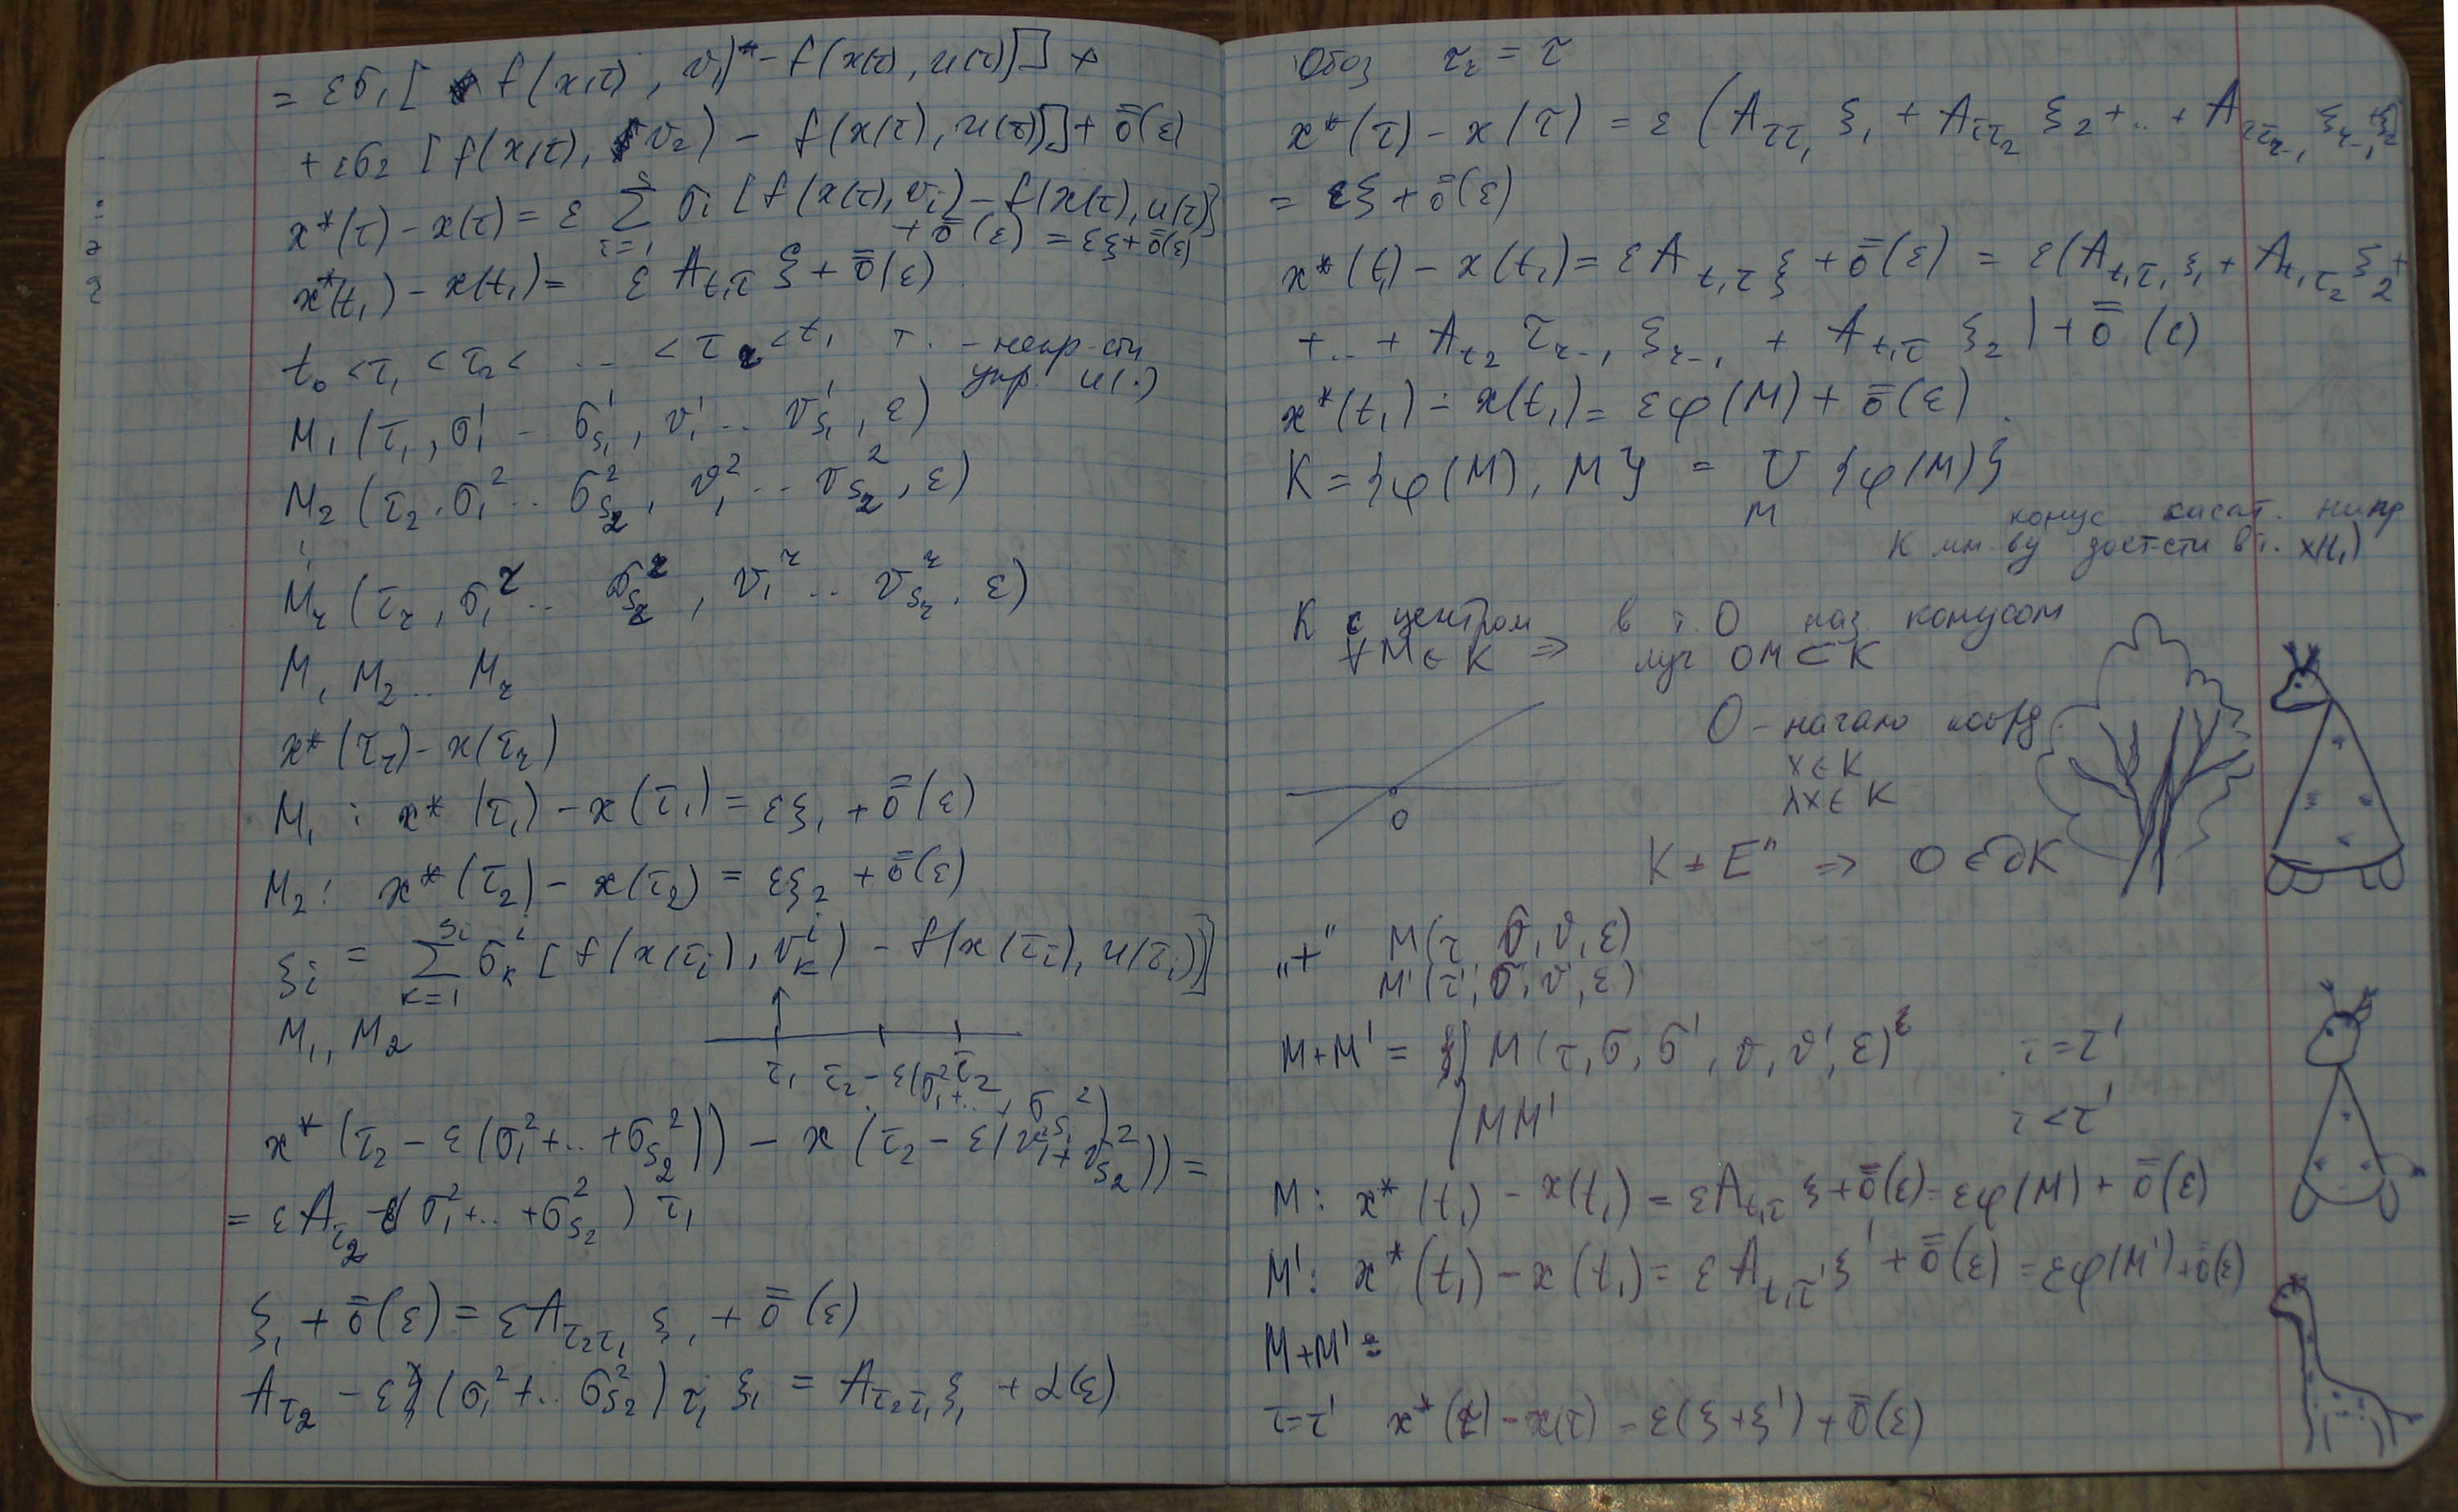 = εσ₁ [ f(x(τ), v₁) - f(x(τ), u(τ))] +
+ εσ₂ [f(x(τ), v₂) - f(x(τ), u(τ))] + o̿(ε)
x*(τ) - x(τ) = ε Σ_{i=1}^{s} σᵢ [f(x(τ), vᵢ) - f(x(τ), u(τ)]
+ o̿(ε) = εξ + o̿(ε)
x*(t₁) - x(t₁) = ε A_{t₁τ} ξ + o̿(ε)
t₀ < τ₁ < τ₂ < ... < τ_r < t₁ т. - непр-сти
упр. u(·)
M₁ (τ₁, σ₁¹ .. σ_{s₁}¹, v₁¹ .. v_{s₁}¹, ε)
M₂ (τ₂, σ₁² .. σ_{s₂}², v₁² .. v_{s₂}², ε)
⋮
M_r (τ_r, σ₁^r .. σ_{s_r}^r, v₁^r .. v_{s_r}^r, ε)
M₁ M₂ .. M_r
x*(τ_r) - x(τ_r)
M₁ : x*(τ₁) - x(τ₁) = εξ₁ + o̿(ε)
M₂ : x*(τ₂) - x(τ₂) = εξ₂ + o̿(ε)
ξᵢ = Σ_{k=1}^{sᵢ} σ_k^i [f(x(τᵢ), v_k^i) - f(x(τᵢ), u(τᵢ))]
M₁, M₂
τ₁ τ₂ - ε(σ₁² + .. + σ_{s₂}²) τ₂
x*(τ₂ - ε(σ₁² + .. + σ_{s₂}²)) - x(τ₂ - ε(σ₁² + .. + σ_{s₂}²)) =
= εA_{τ₂ - ε(σ₁² + .. + σ_{s₂}²) τ₁}
ξ₁ + o̿(ε) = εA_{τ₂τ₁} ξ₁ + o̿(ε)
A_{τ₂ - ε(σ₁² + .. σ_{s₂}²) τ₁} ξ₁ = A_{τ₂τ₁} ξ₁ + α(ε)
Обоз τ_r = τ
x*(τ) - x(τ) = ε (A_{ττ₁} ξ₁ + A_{ττ₂} ξ₂ + .. + A_{ττ_{r-1}} ξ_{r-1}
= εξ + o̿(ε)
x*(t₁) - x(t₁) = εA_{t₁τ} ξ + o̿(ε) = ε(A_{t₁τ₁} ξ₁ + A_{t₁τ₂} ξ₂ +
+ .. + A_{t₁τ_{r-1}} ξ_{r-1} + A_{t₁τ} ξ_r) + o̿(ε)
x*(t₁) - x(t₁) = εφ(M) + o̿(ε).
K = {φ(M), M} = ∪_M {φ(M)}
конус касат. напр
к мн-ву дост-сти в т. x(t₁)
K с центром в т. O наз конусом
∀M ∈ K ⇒ луч OM ⊂ K
O - начало коорд
x ∈ K
λx ∈ K
O
K ≠ Eⁿ ⇒ O ∈ ∂K
„+“ M(τ, σ, v, ε)
M'(τ', σ', v', ε)
M+M' = { M(τ, σ, σ', v, v', ε) τ = τ'
MM' τ > τ'
M : x*(t₁) - x(t₁) = εA_{t₁τ} ξ + o̿(ε) = εφ(M) + o̿(ε)
M' : x*(t₁) - x(t₁) = εA_{t₁τ'} ξ' + o̿(ε) = εφ(M') + o̿(ε)
M+M' =
τ = τ' x*(τ) - x(τ) = ε(ξ + ξ') + o̿(ε)